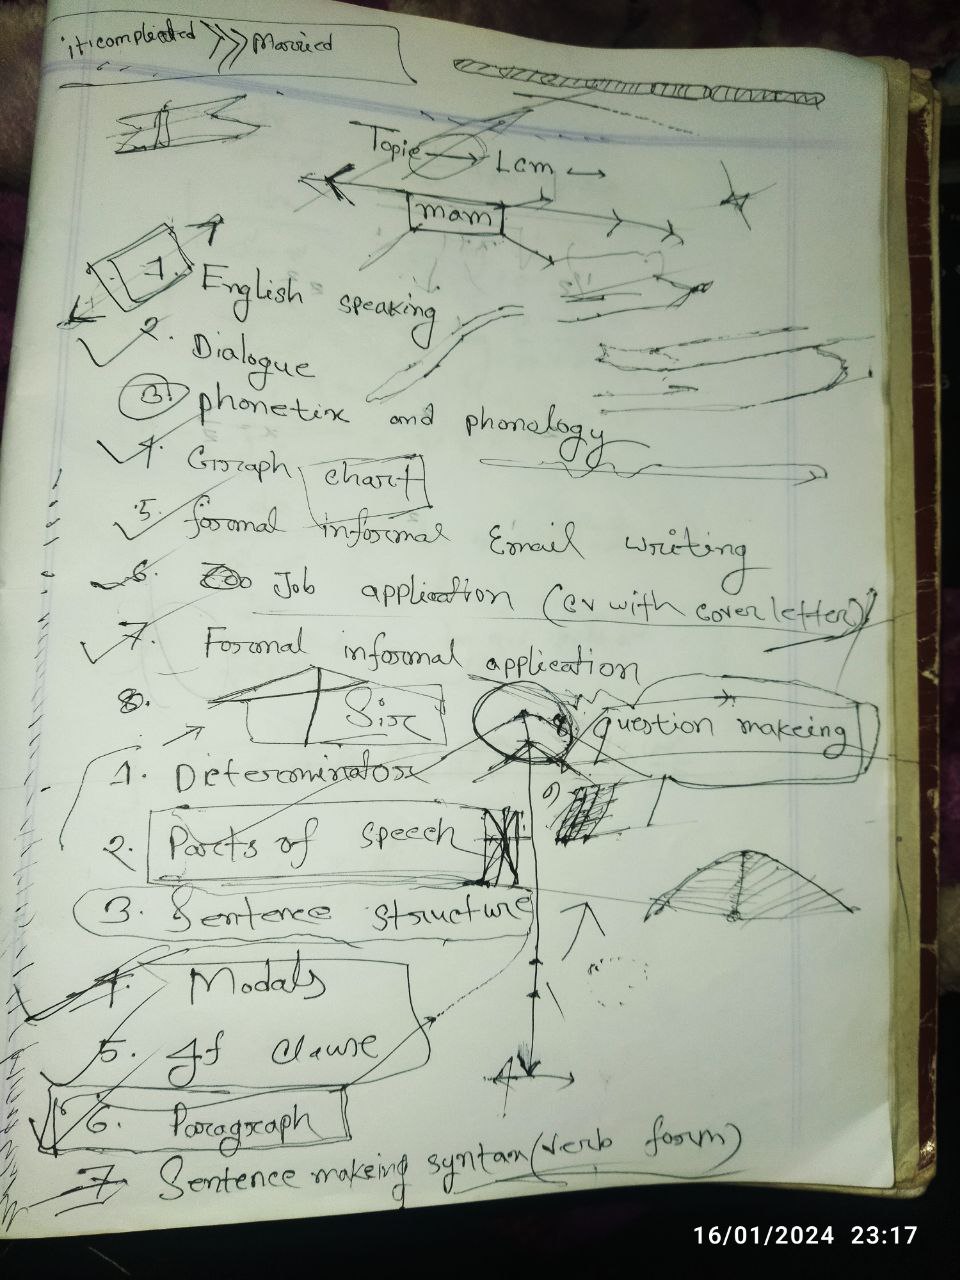 it complicated >>> Married
Topic → Lcm ↔
mam
1. English speaking
2. Dialogue
3. phonetix and phonology
4. Graph chart
5. formal informal Email writing
6. Job application (cv with cover letter)
7. Formal informal application
8. Sir
8. question makeing
9)
1. Determinators
2. Parts of speech
3. Sentence structure
4. Modals
5. If clause
6. Paragraph
7 Sentence makeing syntax (verb form)
16/01/2024 23:17